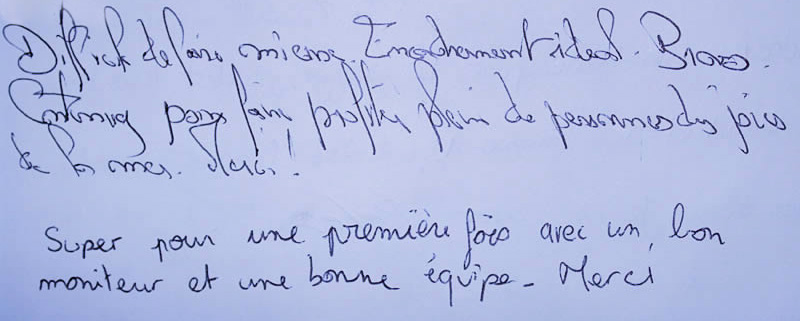 Difficile de faire mieux. Encadrement idéal. Bravo.
Continuez pour faire profiter plein de personnes des joies
de la mer. Merci !
Super pour une première fois avec un bon
moniteur et une bonne équipe - Merci